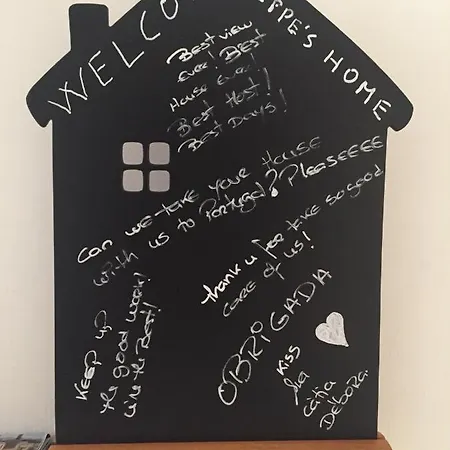 WELCO
EPPE'S HOME
BEST VIEW
EVER! BEST
HOUSE EVER!
BEST HOST!
BEST DAYS!
CAN WE TAKE YOUR HOUSE
WITH US TO PORTUGAL? PLEASEEEE
thank u for take so good
care of us!
OBRIGADA
KEEP UP
the good work!
u're the Best!
KISS
Cátia
DÉBORA.